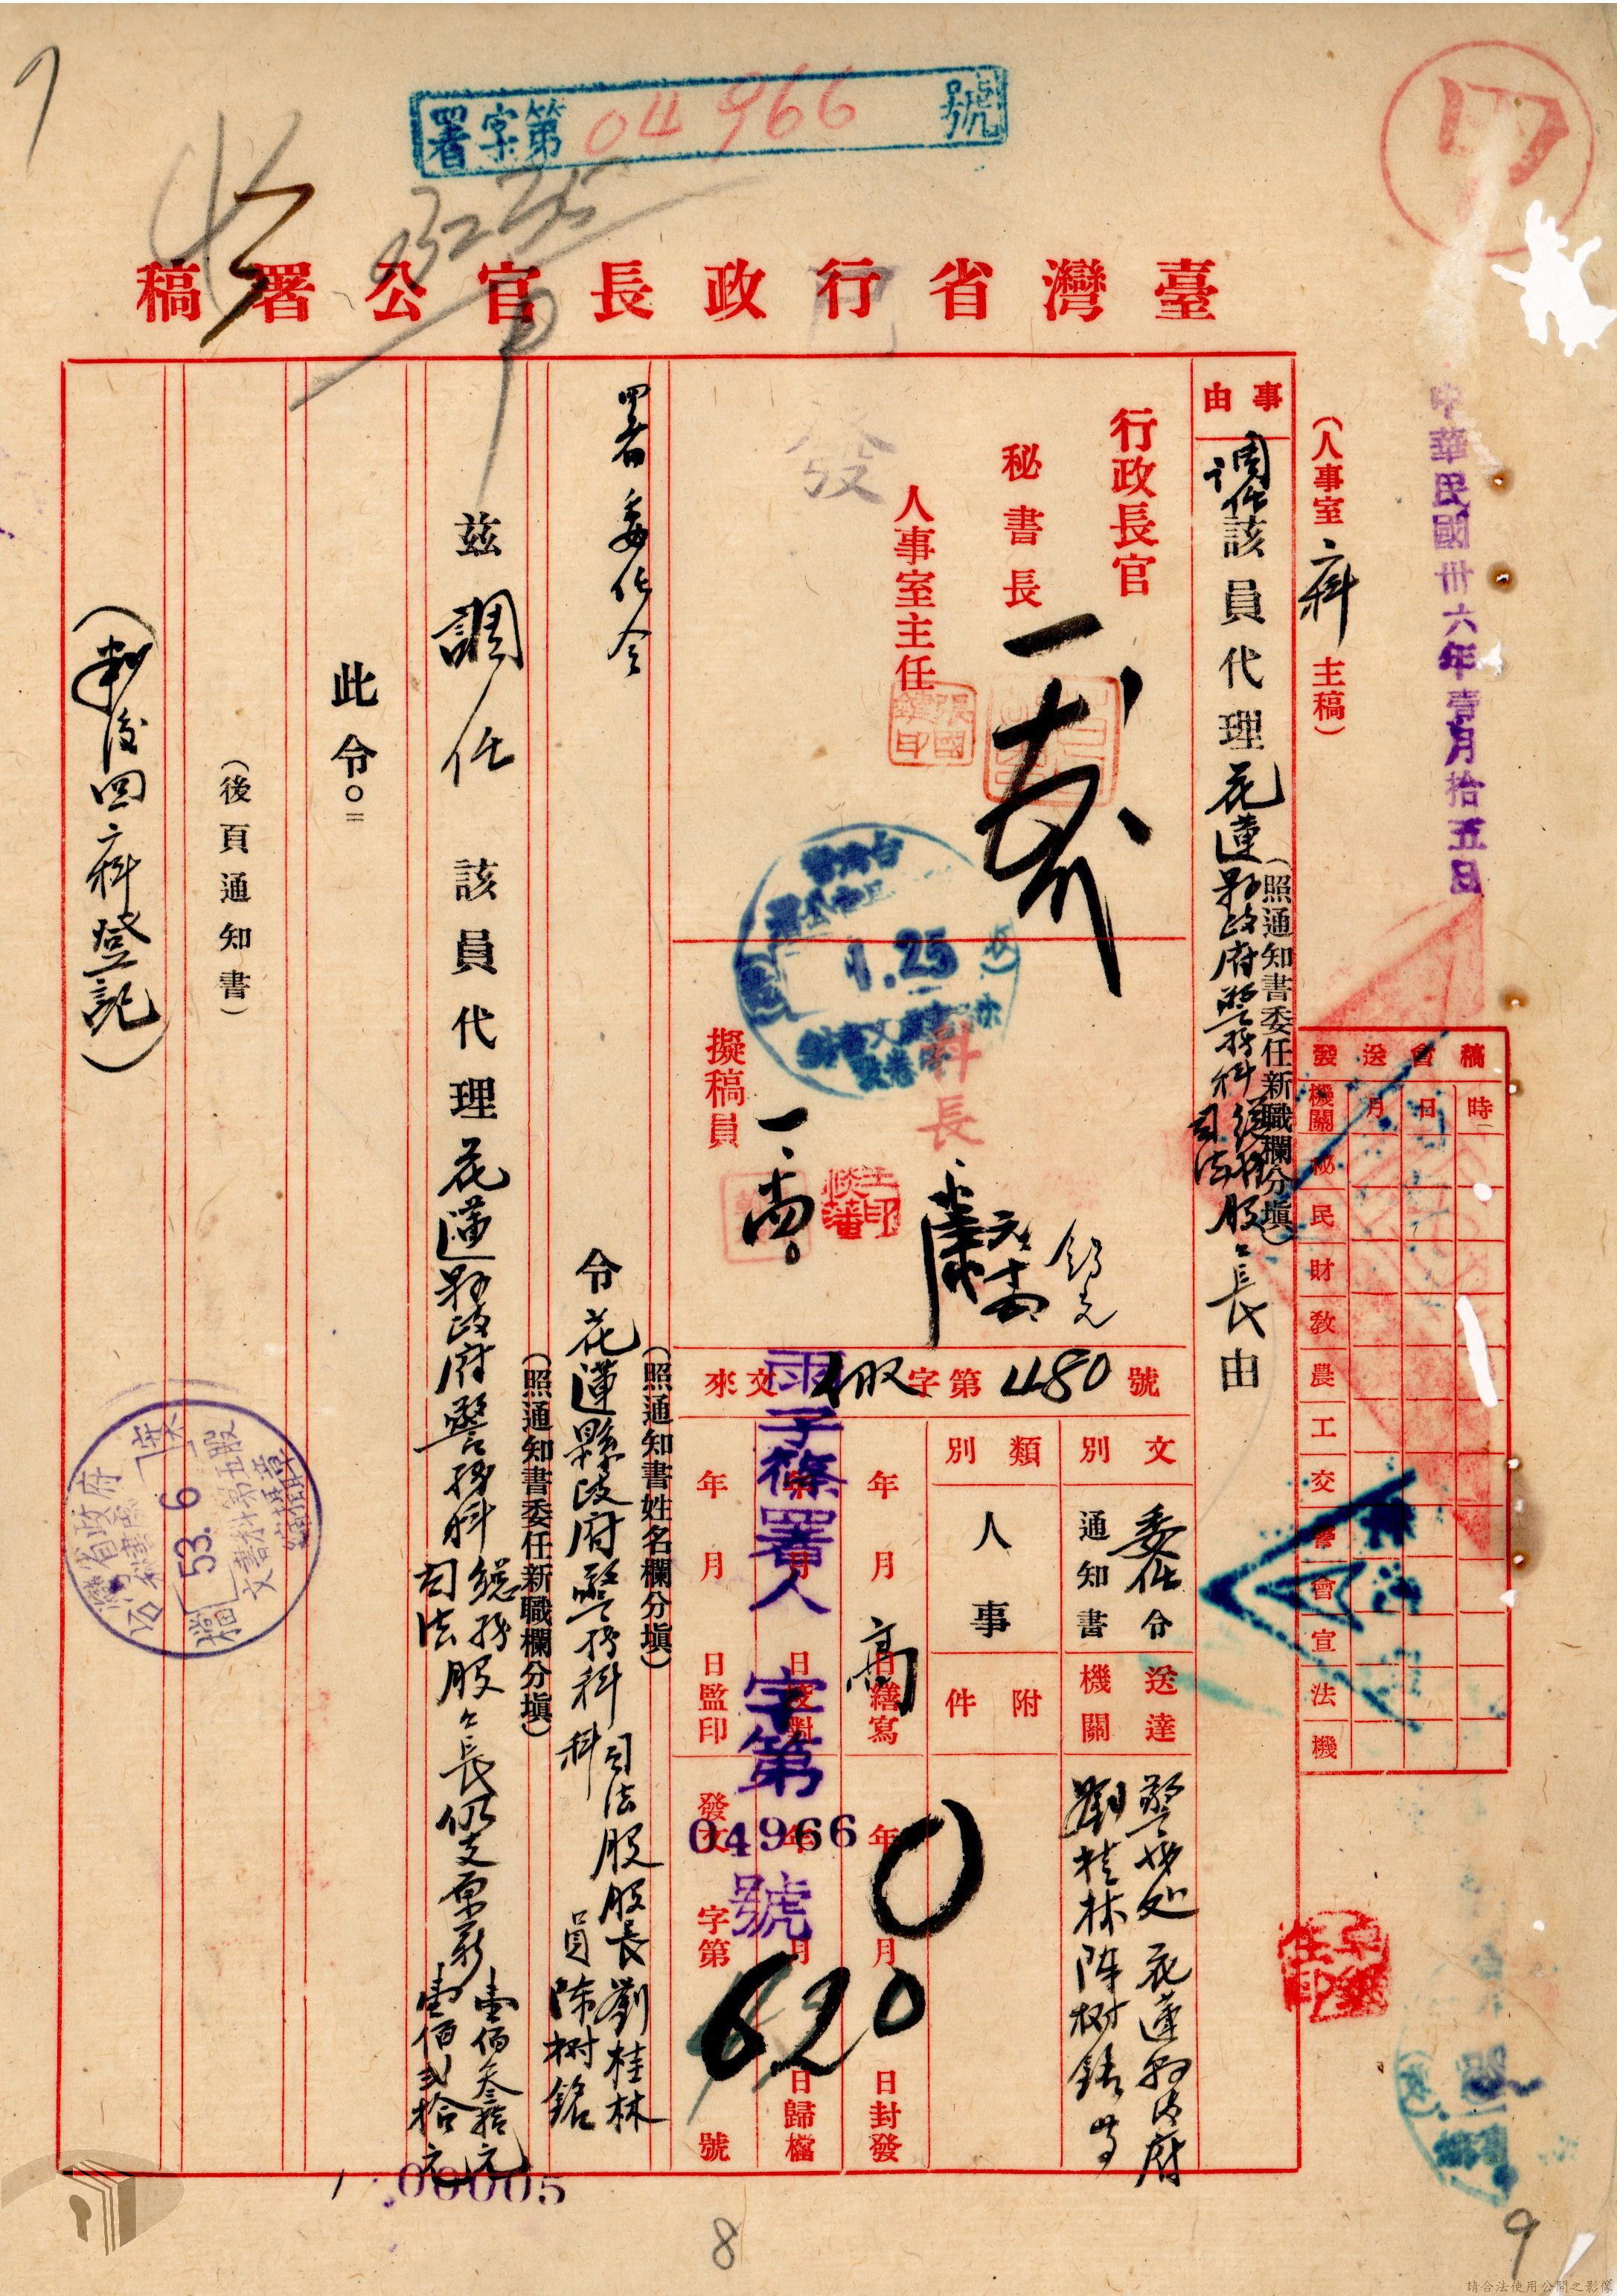 署字第04966號
臺灣省行政長官公署稿
中華民國卅六年壹月拾五日
(人事室一科主稿)
稿會送發
時日月機關
秘民財教農工交警會宣法機
事由
調任該員代理花蓮縣政府警務科總務司法股々長由
(照通知書委任新職欄分填)
行政長官
秘書長
人事室主任
發
1.25
科長
擬稿員
來文
字第480號
文別
委任令
通知書
送達機關
警務処 花蓮縣政府
劉桂林 陳樹銘 等
類別
人事
附件
年月日繕寫
年月日校對
年月日監印
年月日封發
年月日歸檔
發文字第號
署人字第
04966
號
620
署委任令
令花蓮縣政府警務科司法股股長劉桂林
科員陳樹銘
(照通知書姓名欄分填)
茲調任該員代理花蓮縣政府警務科總務司法股々長仍支原薪壹佰叁拾元壹佰弍拾元
(照通知書委任新職欄分填)
此令。
(後頁通知書)
(判後四科登記)
53. 6
00005
7
8
9
請合法使用公開之影像